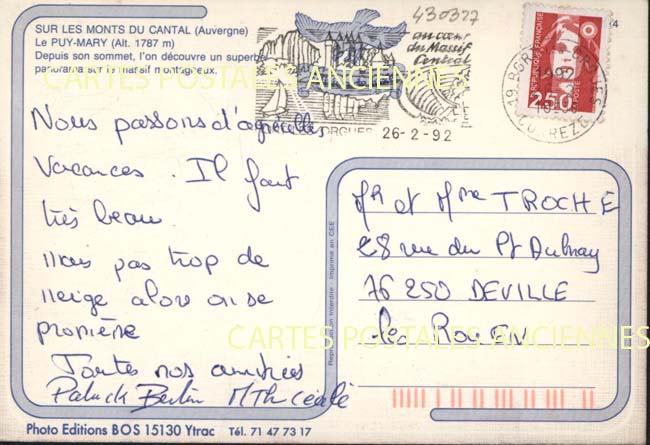 430327
SUR LES MONTS DU CANTAL (Auvergne)
Le PUY-MARY (Alt. 1787 m)
Depuis son sommet, l'on découvre un superbe
panorama sur le massif montagneux.
au cœur
du Massif
Central
ORGUES 26-2-92
19 BORT
CORREZE
REPUBLIQUE FRANÇAISE
2,50
LA POSTE
CARTES POSTALES ANCIENNES
Nous passons d'agréables
vacances. Il fait
très beau
mais pas trop de
neige alors on se
promène
Toutes nos amitiés
Patrick Mth cécile
Mr et Mme TROCHE
28 rue du Pt Aulnay
76 250 DEVILLE
les ROUEN
Reproduction Interdite - Imprimé en CEE
CARTES POSTALES ANCIENNES
Photo Editions BOS 15130 Ytrac Tél. 71 47 73 17